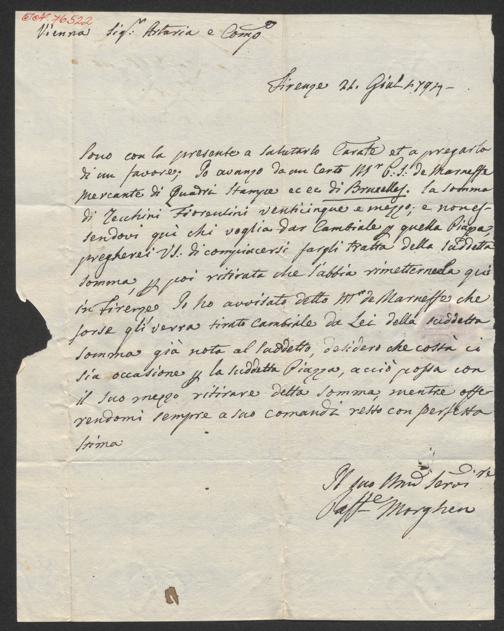 76522
Vienna Sig.ri Artaria e Comp.o
Firenze 21. Giul. 1794
Sono con la presente a salutarlo et a pregarlo
di un favore; Io avanzo da un certo M.r C. S. de Marneffe
mercante di Quadri Stampe ec ec di Brusselles. la somma
di Zecchini Fiorentini venticinque e mezzo; e non es-
sendovi qui chi voglia dar Cambiale p quella Piazza
pregherei V.S. di compiacersi fargli tratta della suddetta
somma, p poi ritirata che l'abbia rimettermela quì
in Firenze. Io ho avvisato detto M.r de Marneffe che
forse gli verrà tirato Cambiale da Lei della suddetta
somma già nota al suddetto, desidero che costà ci
sia occasione p la suddetta Piazza, acciò possa con
il suo mezzo ritirare detta somma, mentre offe-
rendomi sempre a suo comandi resto con perfetta
stima
Il suo
Raff.e Morghen